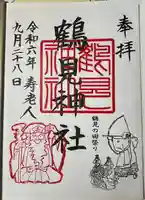 奉拝
鶴見の田祭り
鶴見神社
令和六年 寿老人
九月二十八日